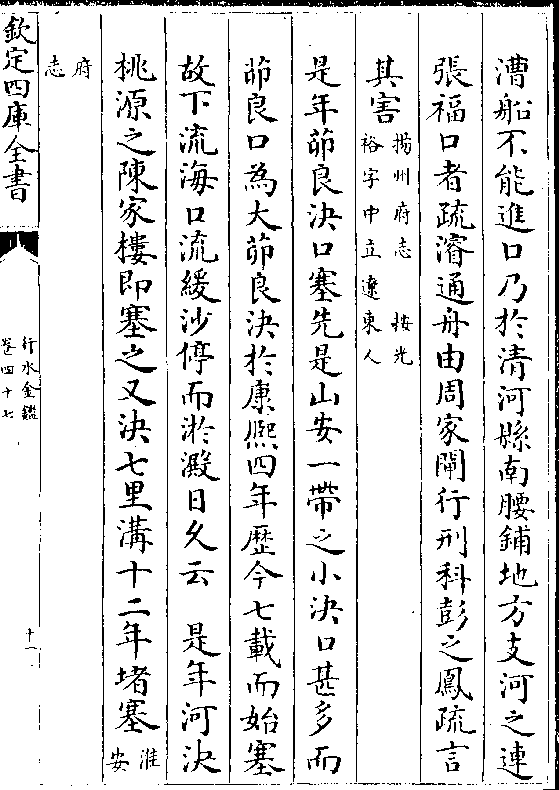 漕船不能進口乃於清河縣南腰鋪地方支河之連
張福口者疏濬通舟由周家閘行刑科彭之鳳疏言
其害揚州府志　按光裕字中立遼東人
是年茆良決口塞先是山安一帶之小決口甚多而
茆良口為大茆良決於康熙四年歷今七載而始塞
故下流海口流緩沙停而淤澱日久云　是年河決
桃源之陳家樓即塞之又決七里溝十二年堵塞淮安
府志
欽定四庫全書
行水金鑑
卷四十七
十一